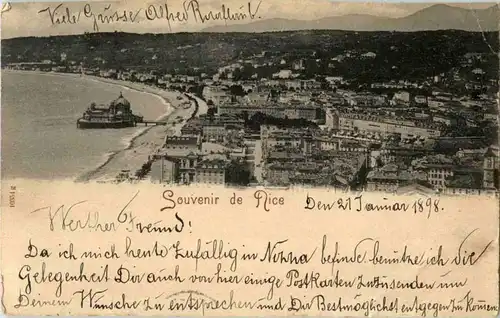 Viele Grüsse Alfred
Souvenir de Nice
Den 21 Januar 1898.
Werther Freund!
Da ich mich heute Zufällig in befinde benütze ich die
Gelegenheit Dir auch von hier einige Postkarten zuzusenden um
Deinem Wunsche zu entsprechen und Dir Bestmöglichst entgegen zu kommen.